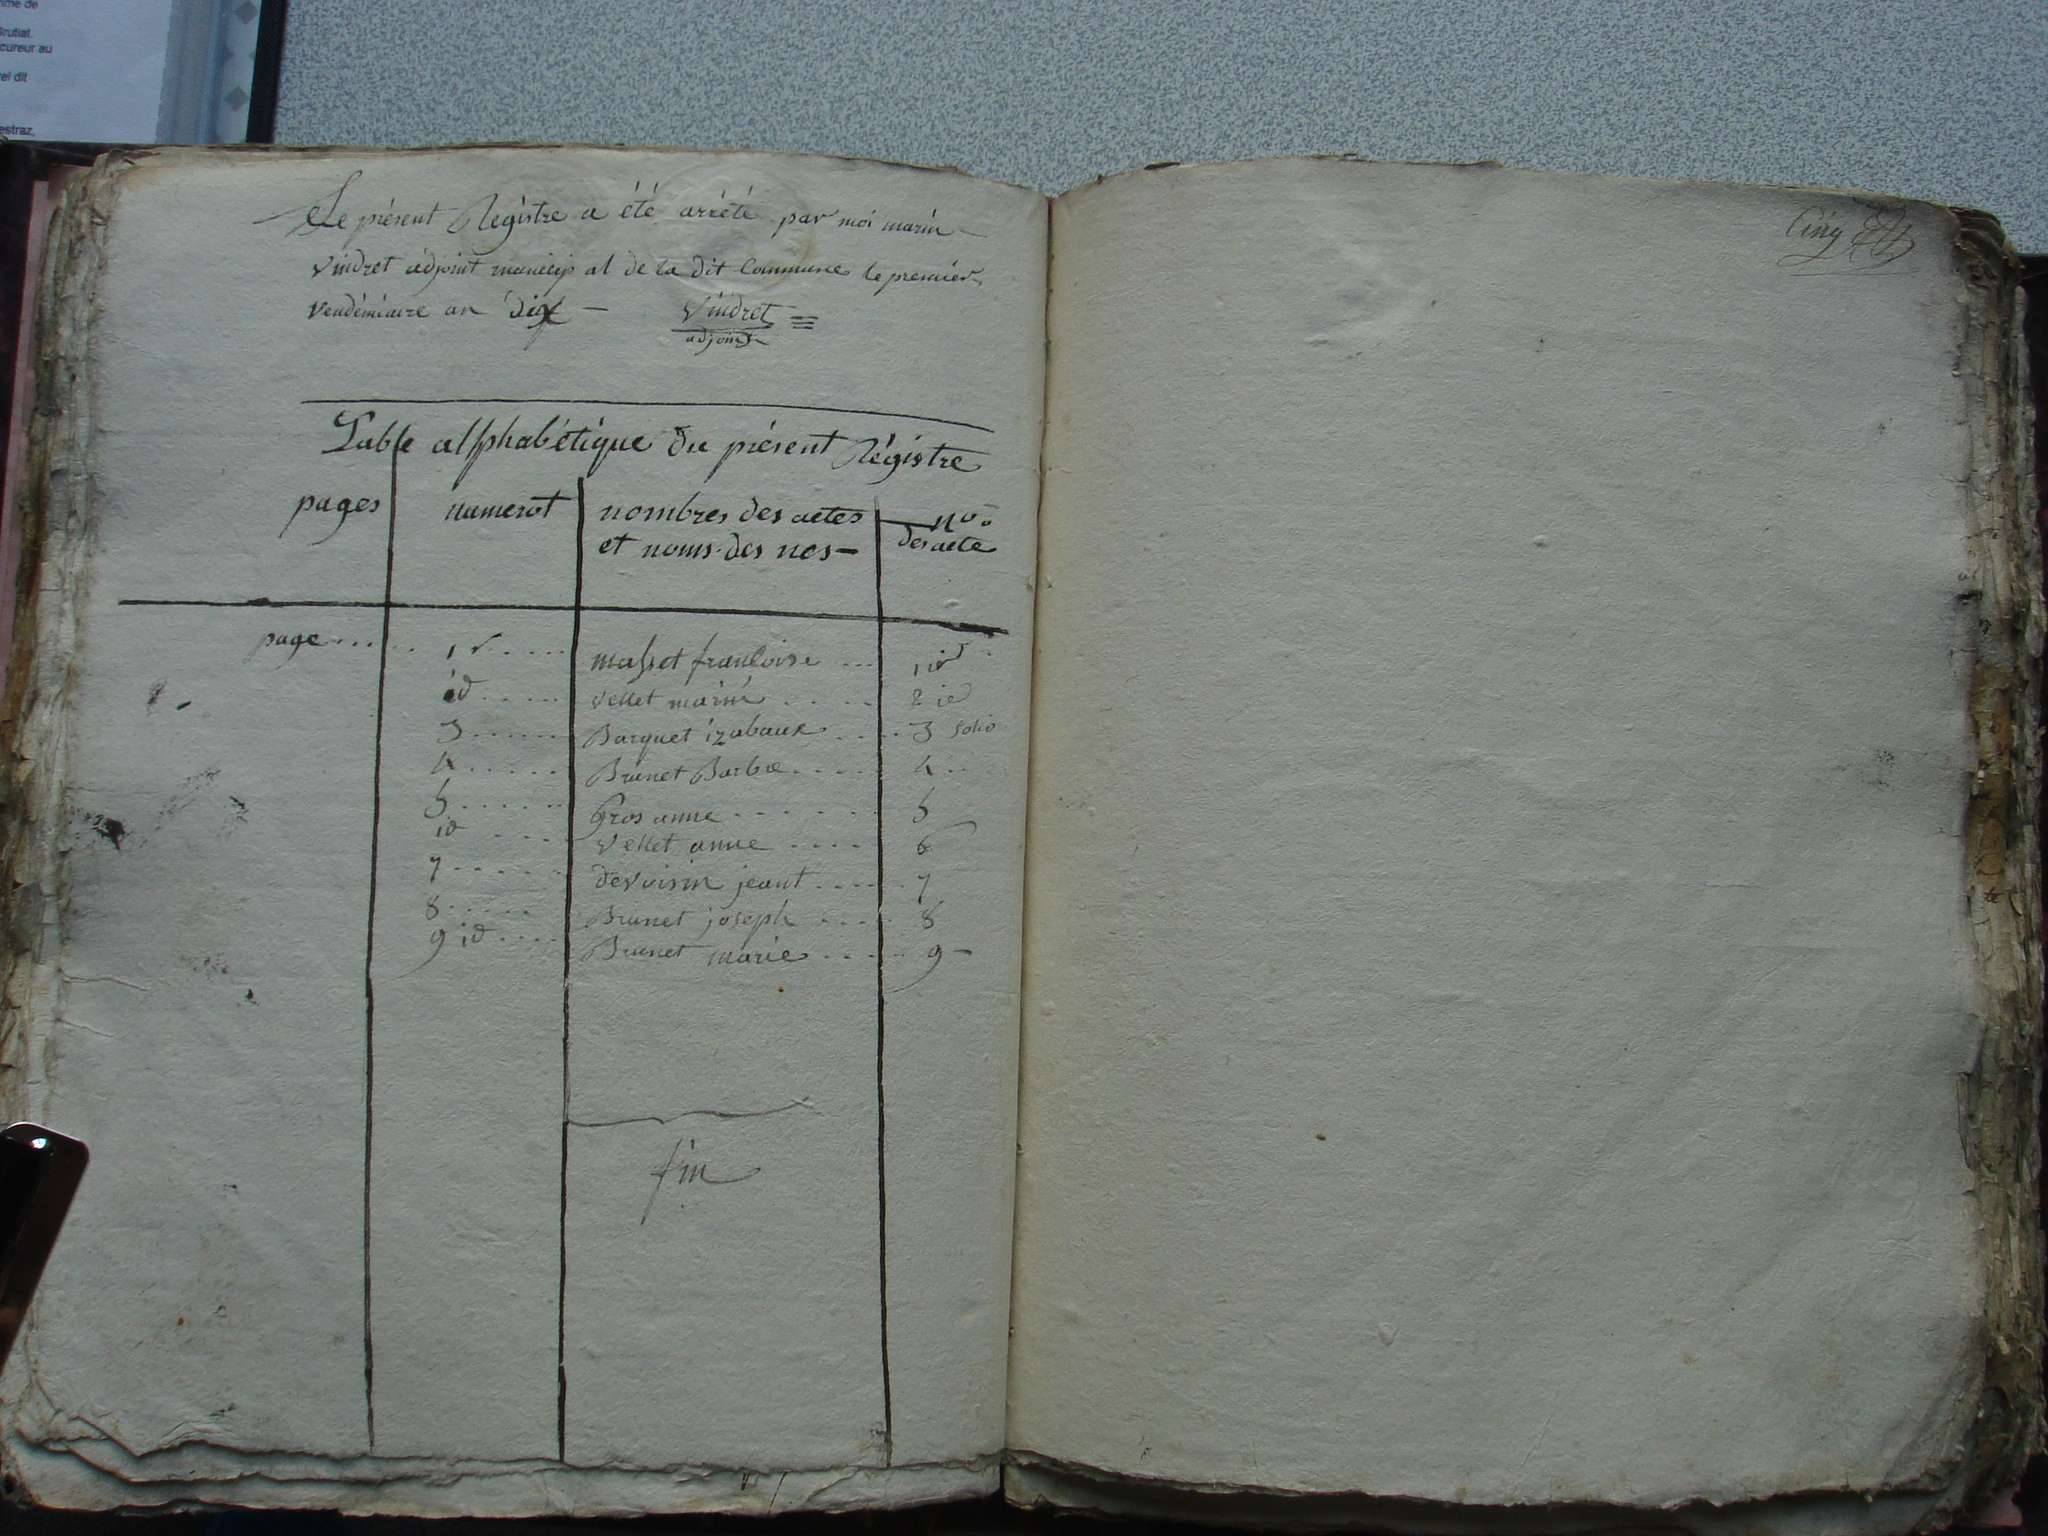 ime de
Brutiat.
cureur au
rel dit
estraz,
Le présent Régistre a été arrété par moi marin
Vindret adjoint municip al de la dit Commune le premier
Vendémiaire an dix — Vindret
adjoint
Table alphabétique du présent Régistre
pages numerot nombres des actes nos
et noms des nes — des acte
page 1r masset francoise 1
id vellet marie 2 id
3 Barquet izabaux 3 folio
4 Brunet Barbe 4
5 Gros anne 5
id vellet anne 6
7 devoisin jeant 7
8 Brunet joseph 8
9 id Brunet marie 9 —
fin
Cinq